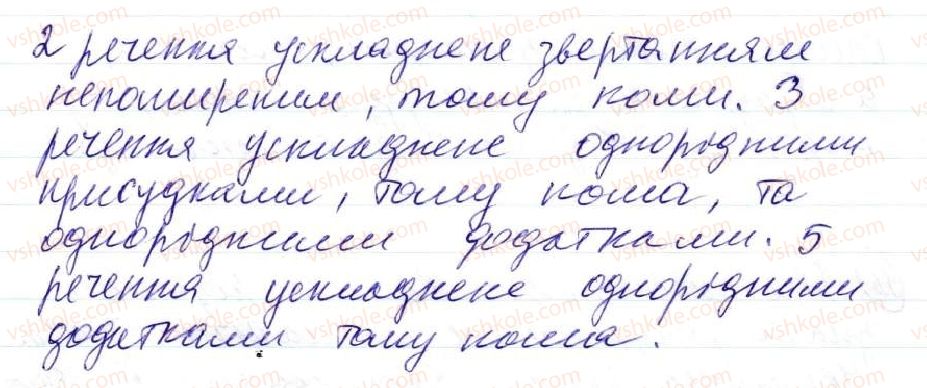 2 речення ускладнене звертанням
непоширеним, тому коми. 3
речення ускладнене однорідними
присудками, тому кома, та
однорідними додатками. 5
речення ускладнене однорідними
додатками тому кома.